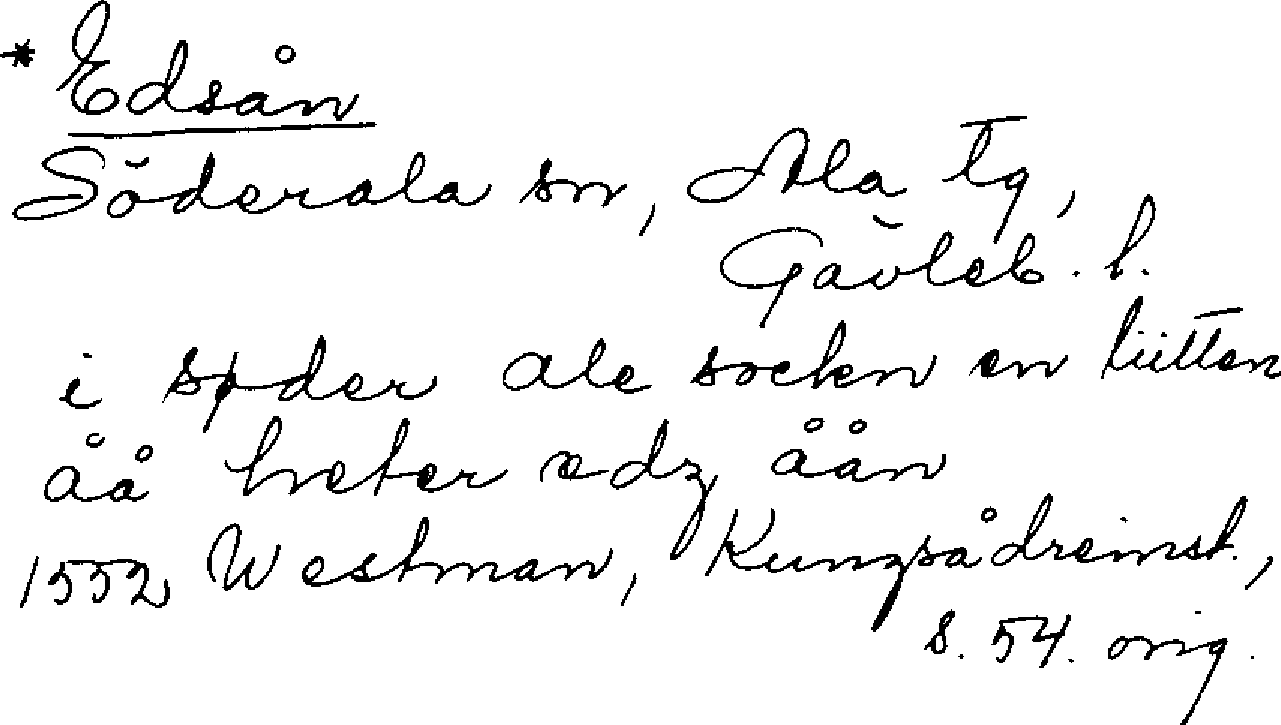 * Edsån
Söderala sn, Ala tg,
Gävleb. l.
i søder ale sockn en liitten
åå heter edz åån
1552 Westman, Kungsådreinst.,
s. 54. orig.